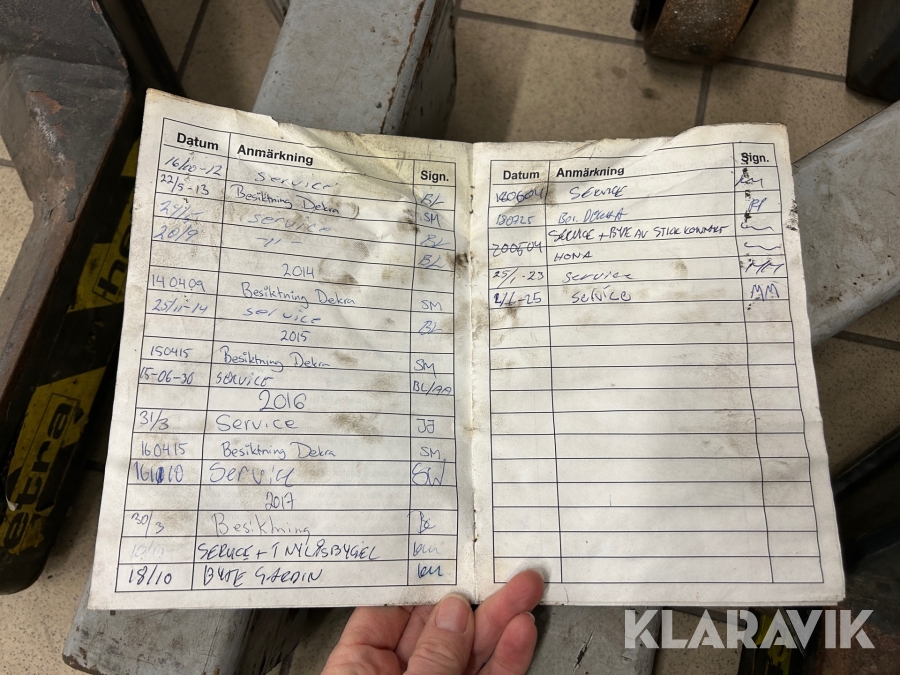 Datum Anmärkning Sign.
16/10-12 Service BL
22/5-13 Besiktning Dekra SM
Service BL
20/9 -"- BL
2014
140409 Besiktning Dekra SM
25/11-14 Service BL
2015
150415 Besiktning Dekra SM
15-06-30 SERVICE BL/AA
2016
31/3 Service JJ
160415 Besiktning Dekra SM
161010 Service SW
2017
30/3 Besiktning
SERVICE + 1 NY LÅSBYGEL
18/10 BYTE GARDIN
Datum Anmärkning Sign.
180604 SERVICE
180725 Bes. DEKRA
200504 SERVICE + BYTE AV STICKKONTAKT
HONA
25/1-23 Service MM
Service MM
etra
KLARAVIK